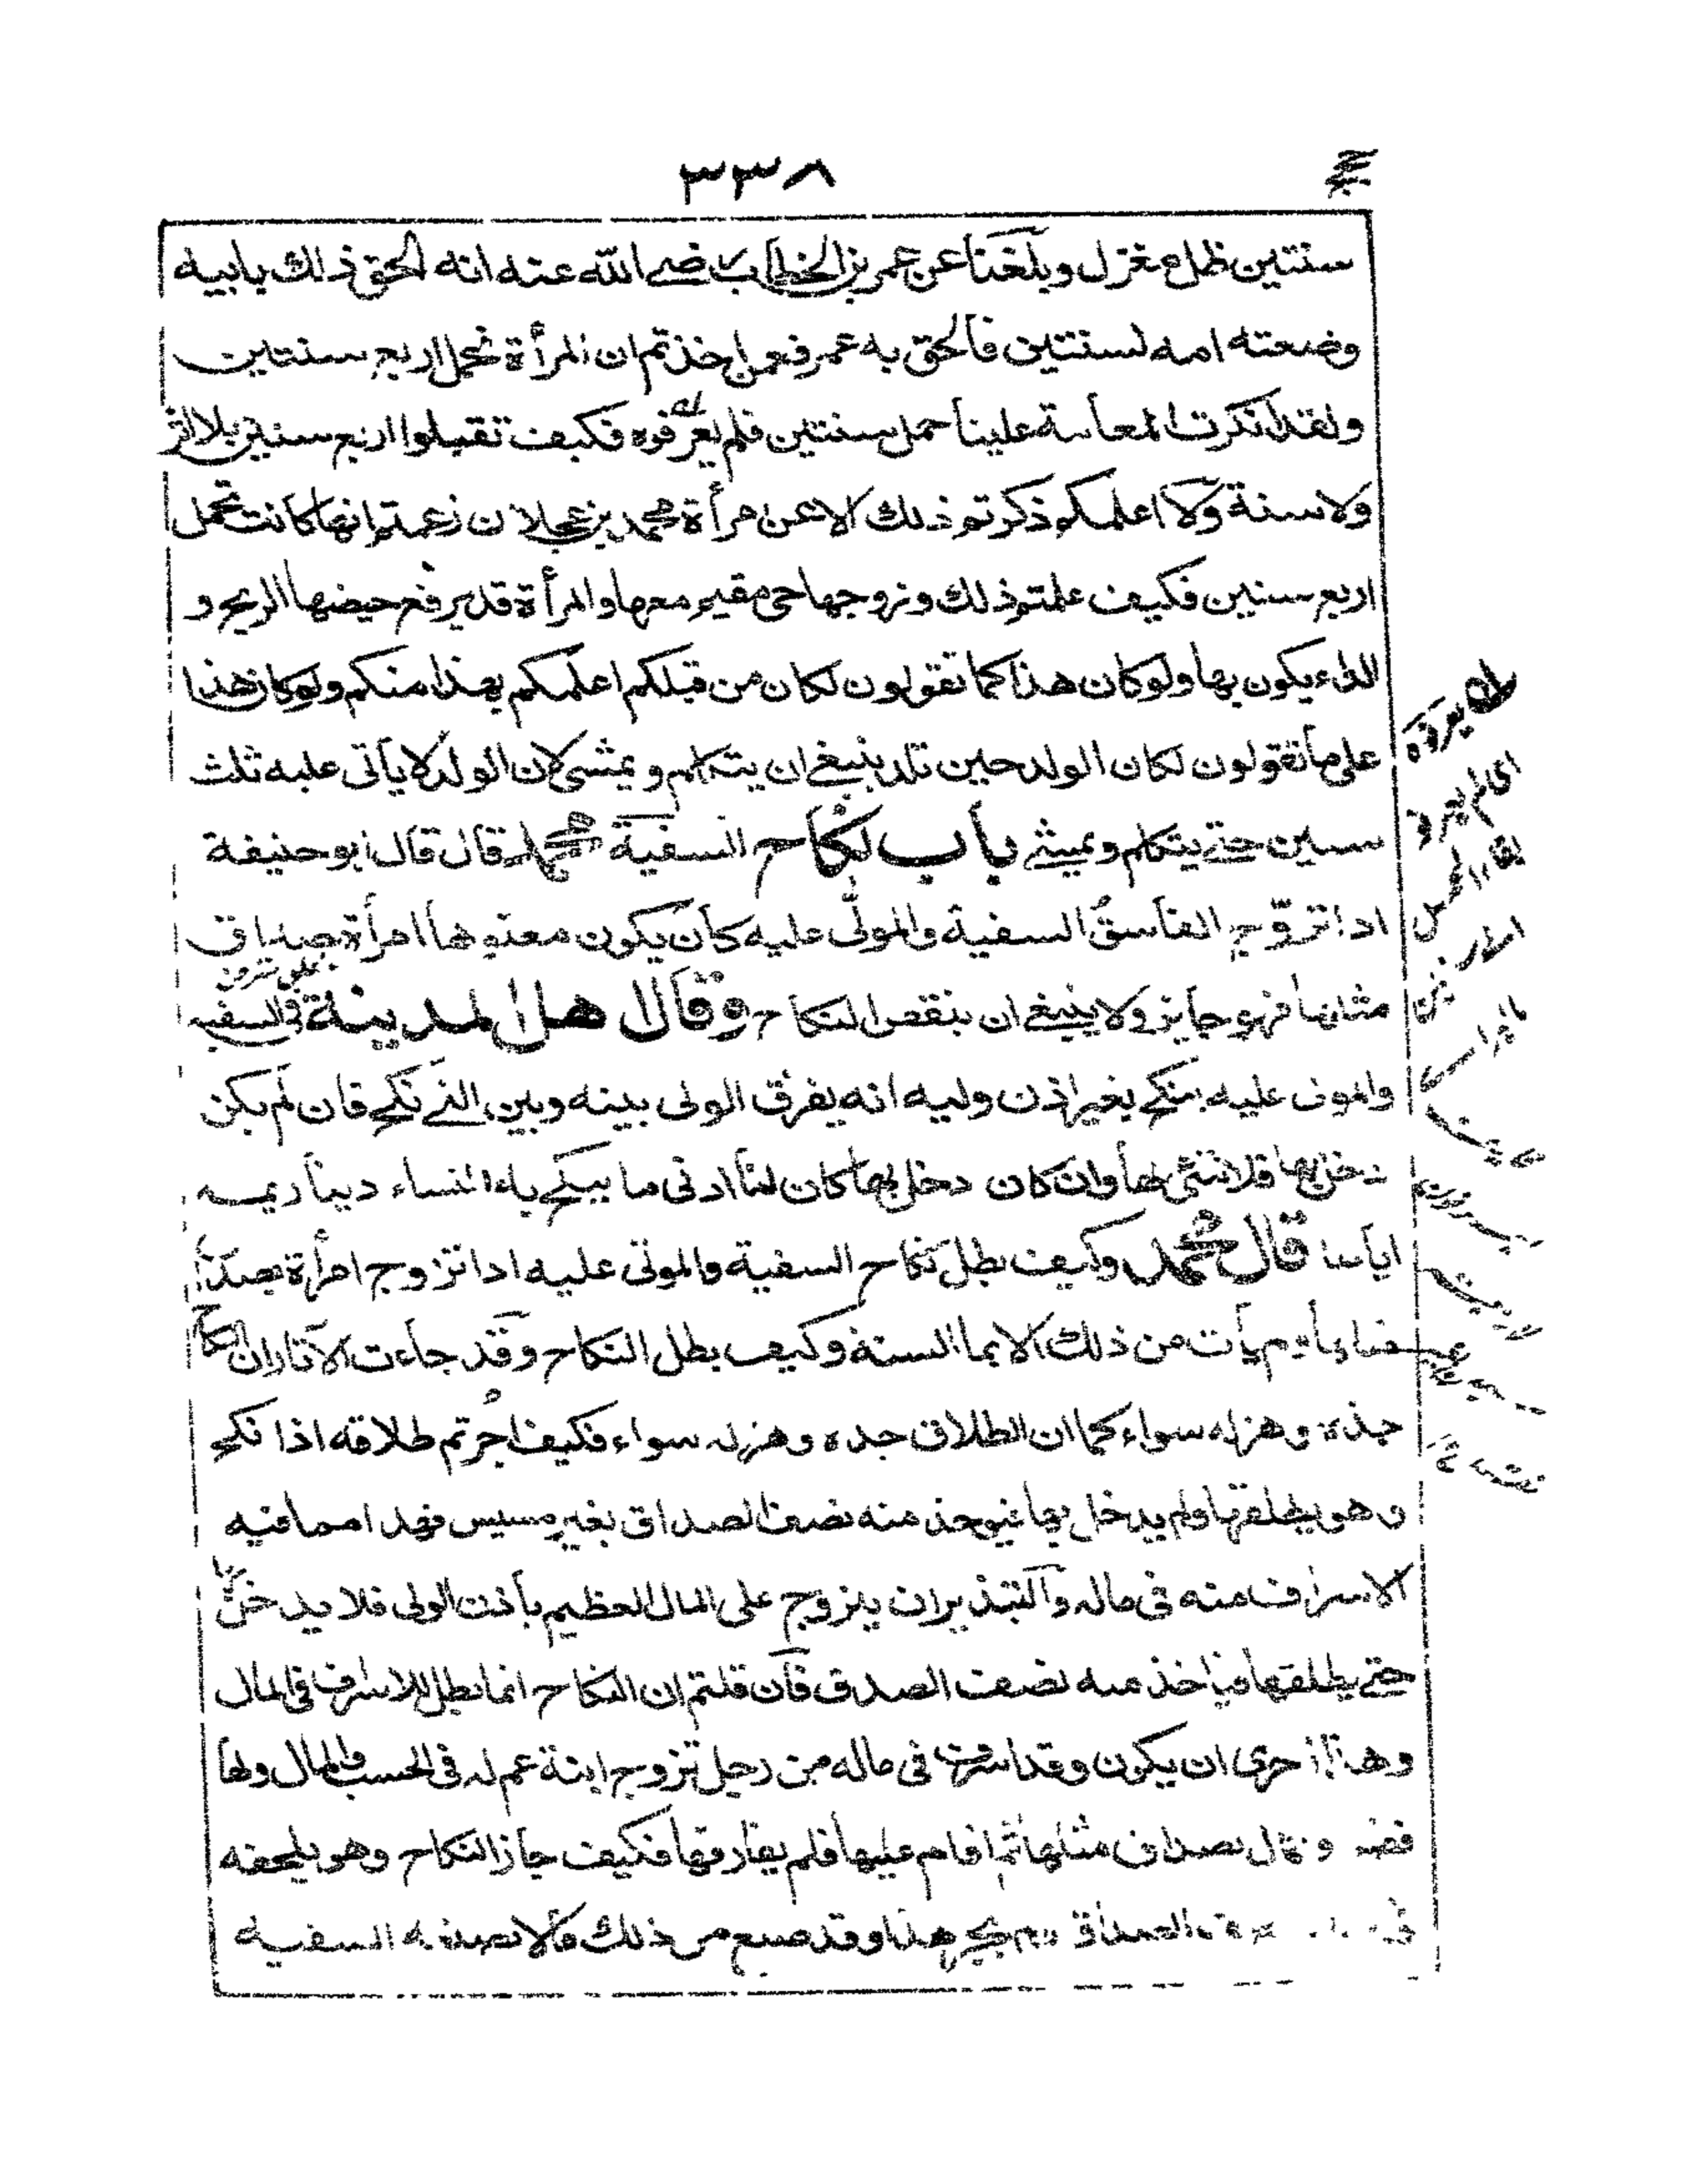 ٣٣٨
سنتين ظل مغزل وبلغنا عن عمر بن الخطاب رضي الله عنه انه الحق ذلك بابيه
وضعته امه لسنتين فالحق به عمر فعمن اخذتم ان المرأة تحمل اربع سنتين
ولقد انكرت المعاسة علينا حمل سنتين فلم يعرفوه فكيف تقبلوا اربع سنين بلا اثر
ولا سنة ولا اعلمكم ذكرتم ذلك الا عن امرأة محمد بن عجلان زعمتم انها كانت تحمل
اربع سنين فكيف علمتم ذلك وزوجها حي مقيم معها والمرأة قد يرفع حيضها الريح و
الداء يكون بها ولو كان هذا كما تقولون لكان من قبلكم اعلمكم بهذا منكم ولو كان هذا
على ما تقولون لكان الولد حين تلد ينبغي ان يتكلم ويمشي لان الولد لا يأتي عليه ثلث
سنين حتى يتكلم ويمشي باب نكاح السفية محمد قال قال ابو حنيفة
اذا تزوج الفاسق السفية والمولى عليه كان يكون معتوها امرأة بصداق
مثلها فهو جايز ولا ينبغي ان ينقض النكاح وقال اهل المدينة في السفيه
والمولى عليه ينكح بغير اذن وليه انه يفرق الولي بينه وبين التي نكح فان لم يكن
دخل بها فلا شئ لها وان كان دخل بها كان لها ادنى ما ينكح به النساء دينار يمسه
اياها قال محمد وكيف بطل نكاح السفية والمولى عليه اذا تزوج امرأة بصداق
لم يأت من ذلك الا بما السنة وكيف بطل النكاح وقد جاءت الآثار ان النكاح
جده وهزله سواء كما ان الطلاق جده وهزله سواء فكيف اجزتم طلاقه اذا نكح
وهو يطلقها ولم يدخل بها فيوخذ منه نصف الصداق بغير مسيس فهذا مما فيه
الاسراف منه في ماله والتبذير ان يتزوج على المال العظيم باذن الولي فلا يدخل بها
حتى يطلقها فياخذ منه نصف الصدق فان قلتم ان النكاح انما بطل للاسراف في المال
وهذا احرى ان يكون وقد اسرف في ماله من رجل تزوج ابنة عم له في الحسب والمال ولها
بصداق مثلها ثم اقام عليها فلم يفارقها فكيف جاز النكاح وهو يلحقه
في الصداق ولم يجز هذا وقد صنع من ذلك مالا يصنعه السفيه